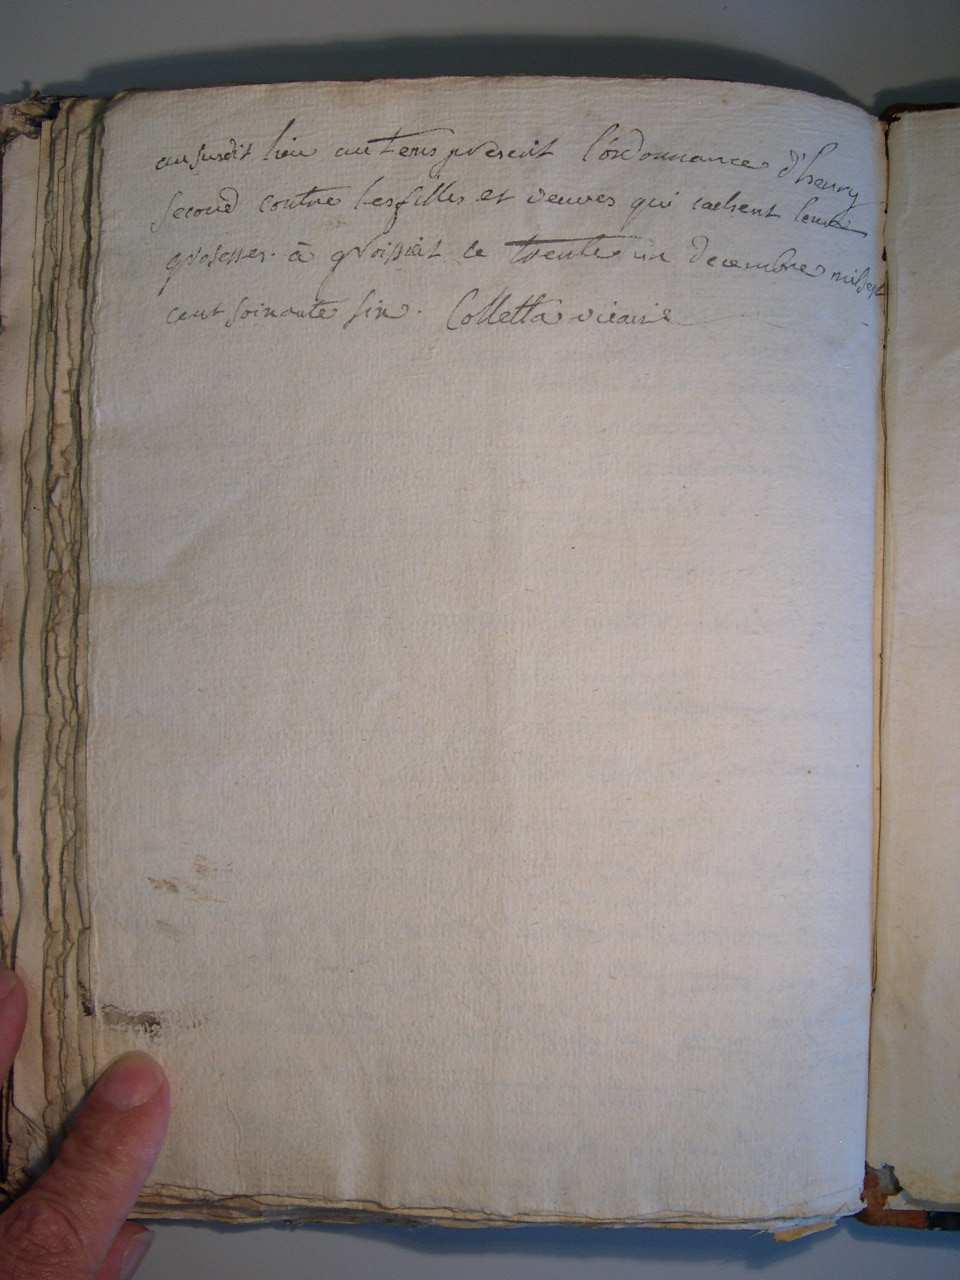 au susdit lieu au tems prescrit l'ordonnance d'henry
second contre les filles et veuves qui cachent leur
grosesses. à groissiat ce trente un decembre mil sept
cent soixante six. Colletta vicaire